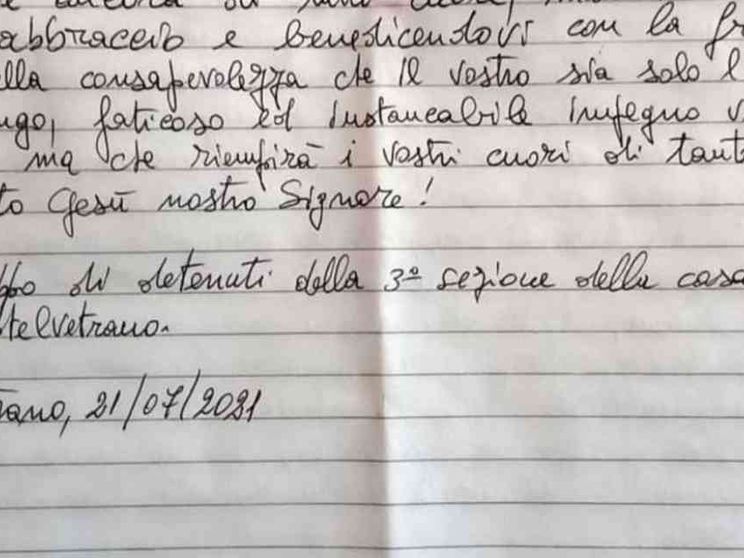 abbraccio e benedicendovi con la
lla consapevolezza che il vostro sia solo l
ngo, faticoso ed instancabile impegno v
ma che riempirà i vostri cuori di tant
to Gesù nostro Signore!
ppo di detenuti della 3ª sezione della casa
telvetrano.
rano, 21/07/2021